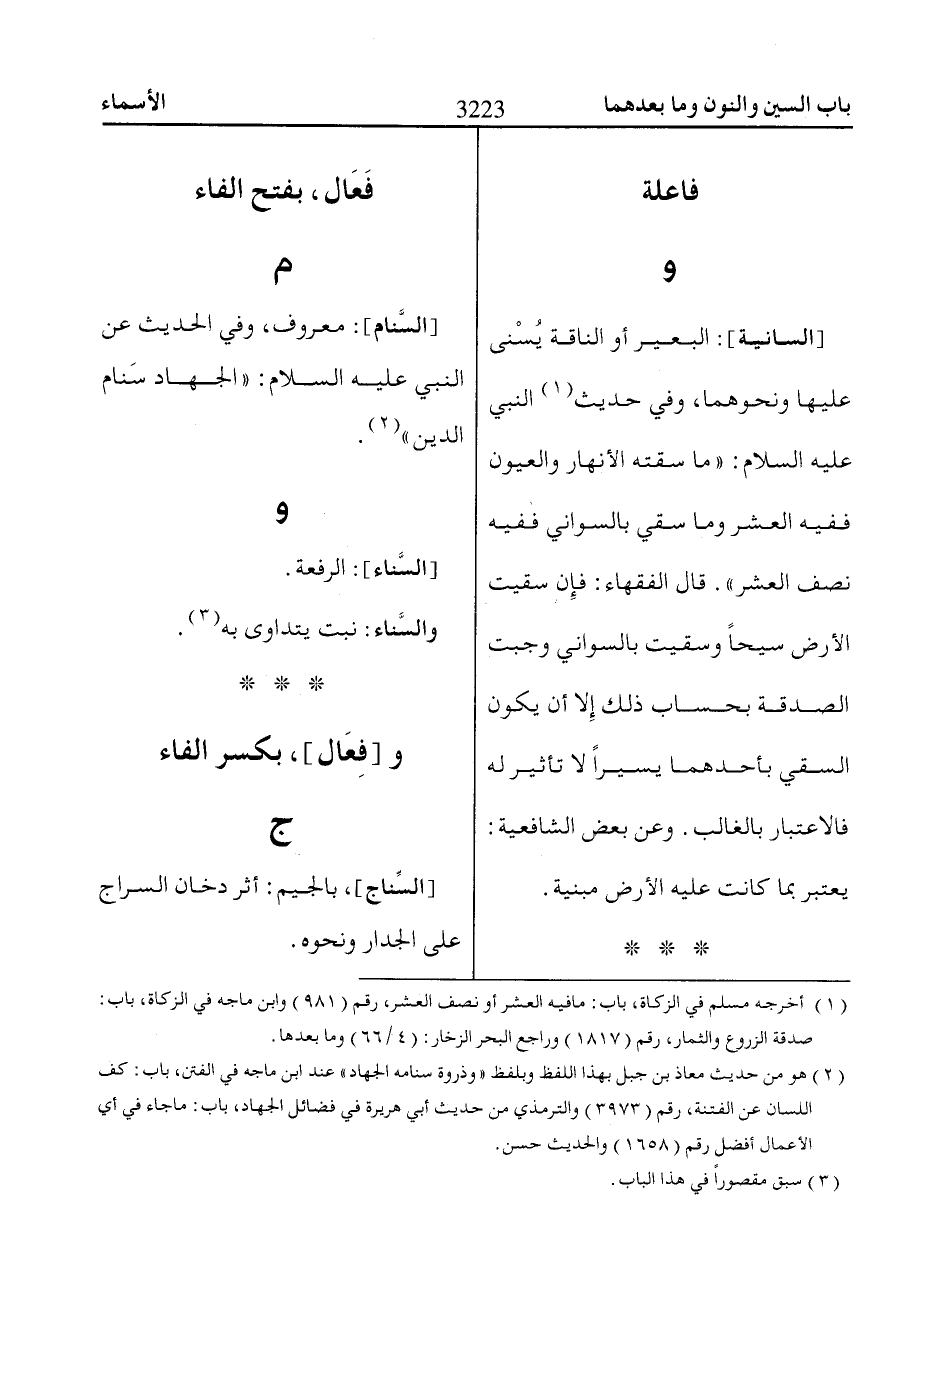 باب السين والنون وما بعدهما
3223
الأسماء
فاعلة
و
[السانية]: البعير أو الناقة يُسْنى
عليها ونحوهما، وفي حديث(١) النبي
عليه السلام: «ما سقته الأنهار والعيون
ففيه العشر وما سقي بالسواني ففيه
نصف العشر». قال الفقهاء: فإن سقيت
الأرض سيحاً وسقيت بالسواني وجبت
الصدقة بحساب ذلك إلا أن يكون
السقي بأحدهما يسيراً لا تأثير له
فالاعتبار بالغالب. وعن بعض الشافعية:
يعتبر بما كانت عليه الأرض مبنية.
* * *
فَعَال، بفتح الفاء
م
[السَّنام]: معروف، وفي الحديث عن
النبي عليه السلام: «الجهاد سَنام
الدين»(٢).
و
[السَّناء]: الرفعة.
والسَّناء: نبت يتداوى به(٣).
* * *
و [فِعَال]، بكسر الفاء
ج
[السِّناج]، بالجيم: أثر دخان السراج
على الجدار ونحوه.
(١) أخرجه مسلم في الزكاة، باب: مافيه العشر أو نصف العشر، رقم (٩٨١) وابن ماجه في الزكاة، باب:
صدقة الزروع والثمار، رقم (١٨١٧) وراجع البحر الزخار: (٤/٦٦) وما بعدها.
(٢) هو من حديث معاذ بن جبل بهذا اللفظ وبلفظ «وذروة سنامه الجهاد» عند ابن ماجه في الفتن، باب: كف
اللسان عن الفتنة، رقم (٣٩٧٣) والترمذي من حديث أبي هريرة في فضائل الجهاد، باب: ماجاء في أي
الأعمال أفضل رقم (١٦٥٨) والحديث حسن.
(٣) سبق مقصوراً في هذا الباب.